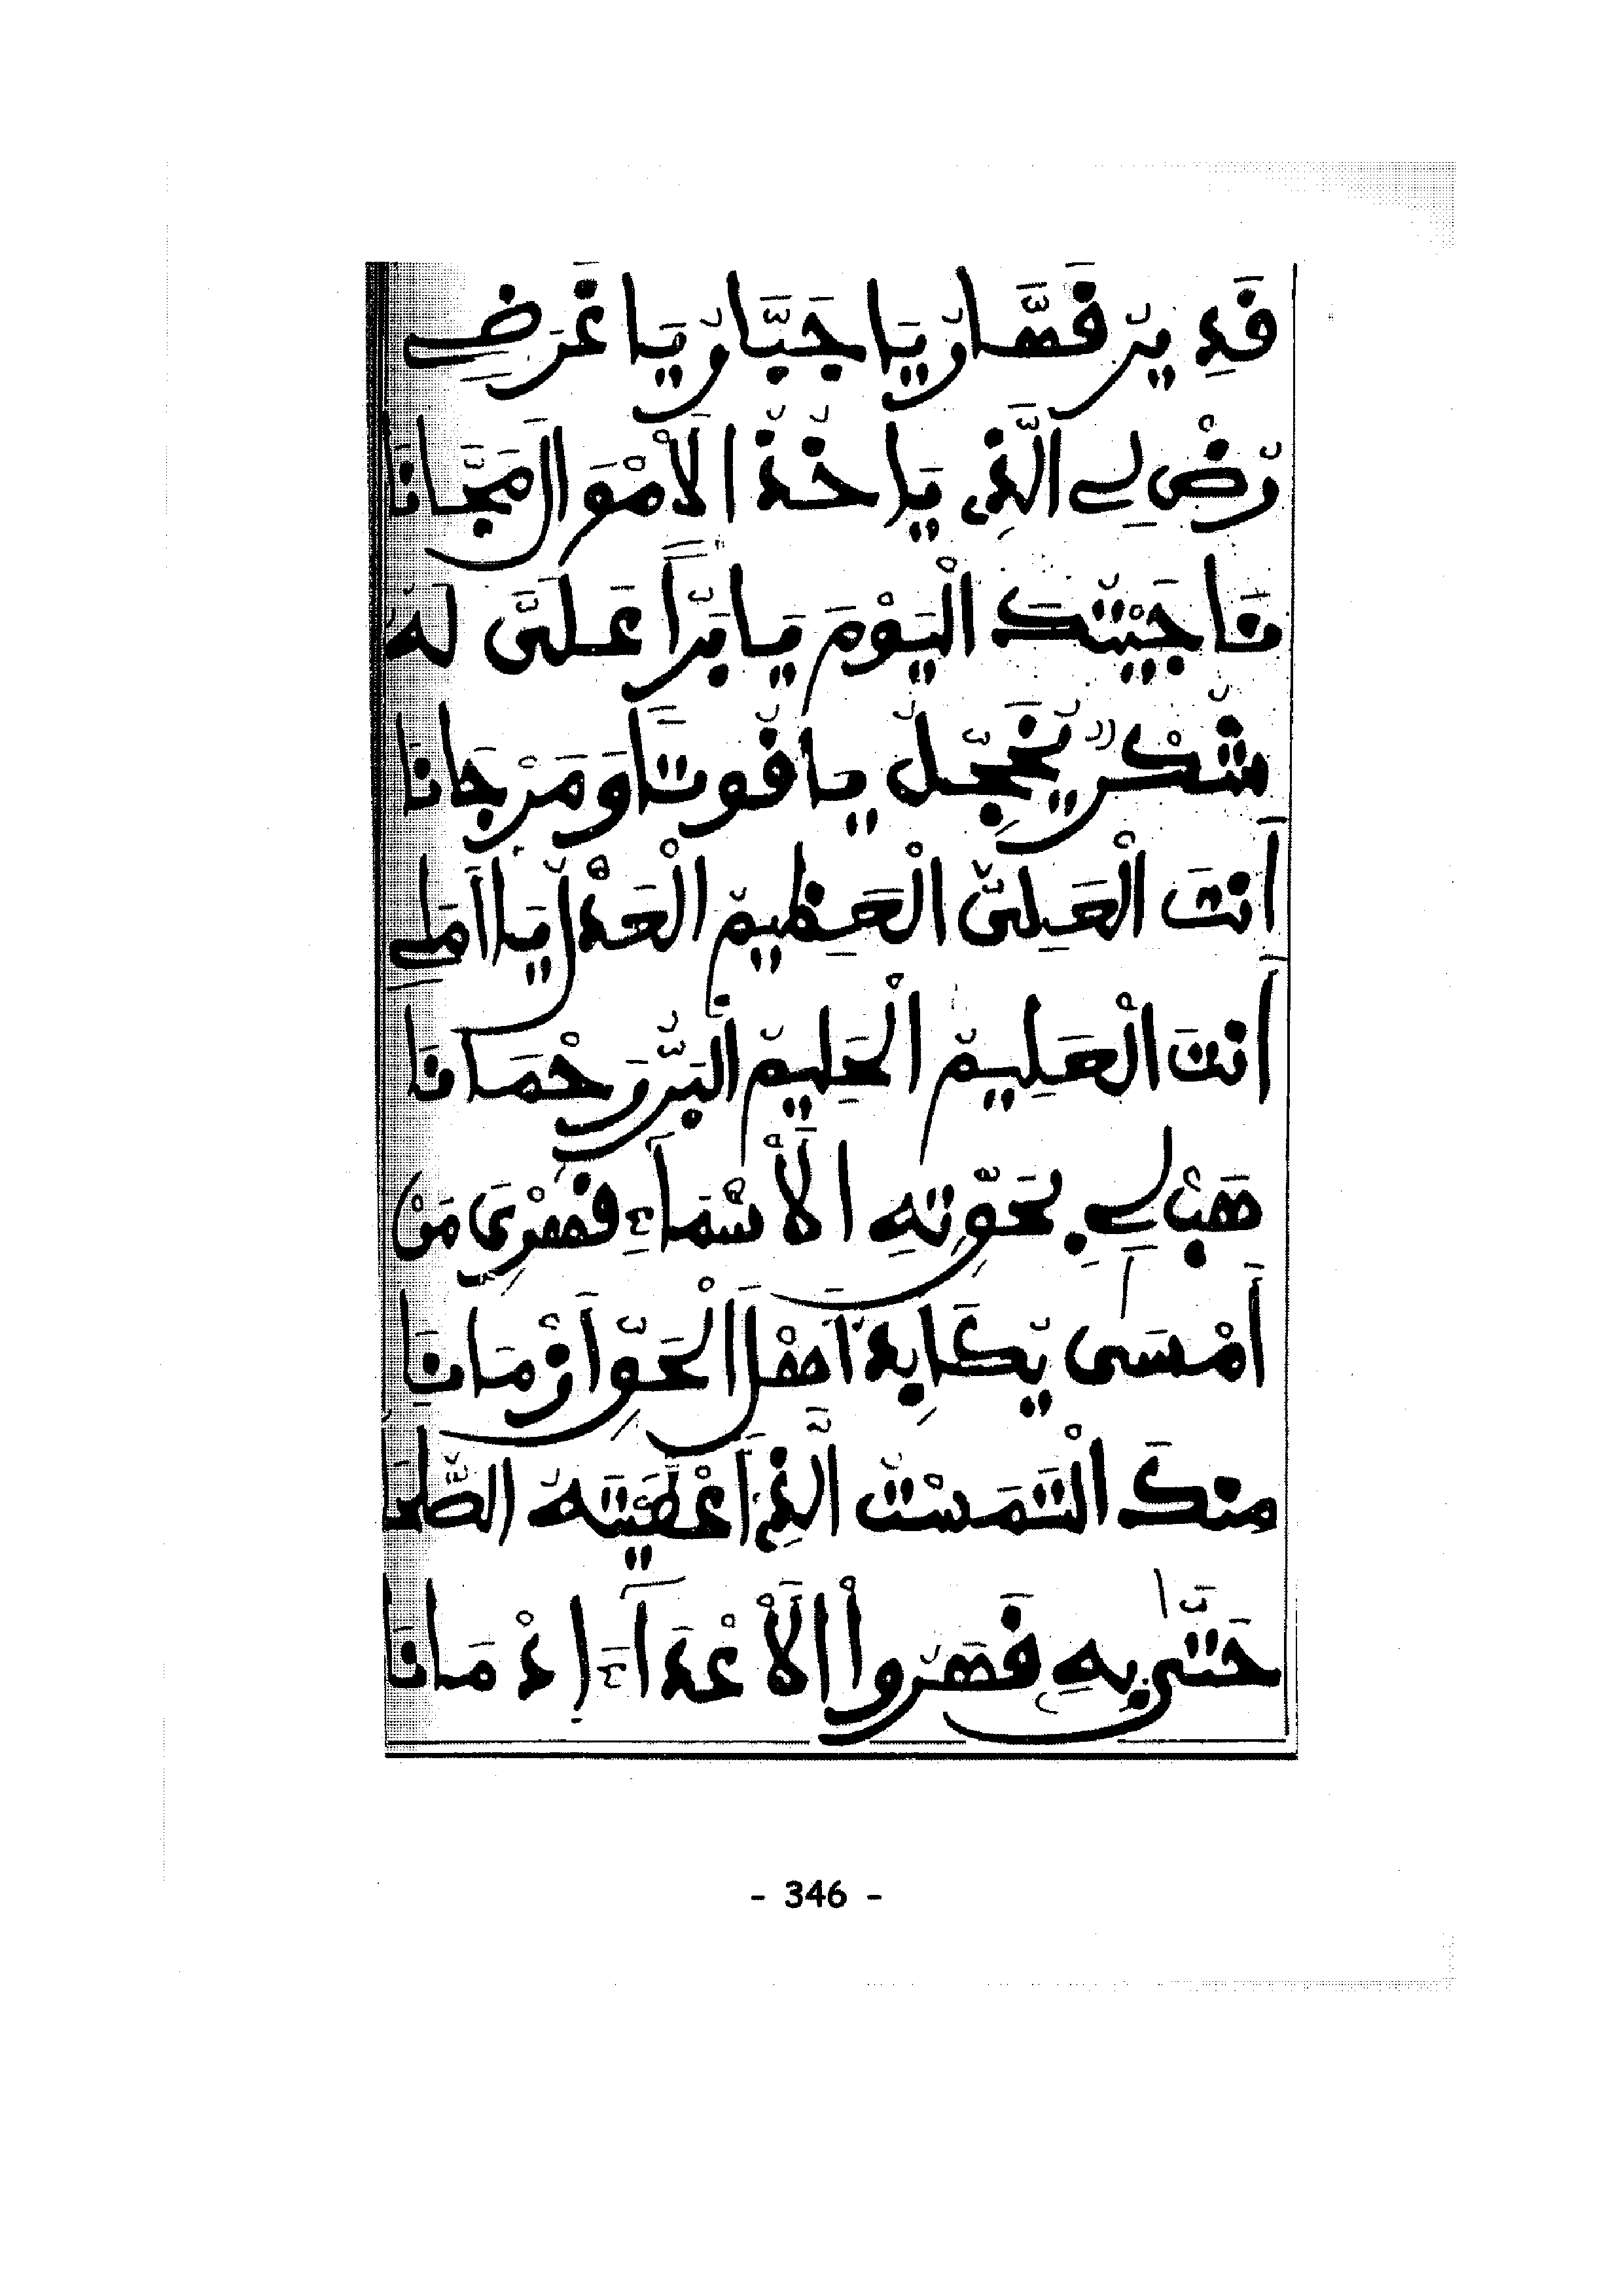 قَدِيرُ قَهَّارُ يَا جَبَّارُ يَا غَرَضِے
رُضْ لِے الَّذِے يَاخُذُ الَامْوَالَ مَجَّانَا
نَاجَيْتُكَ الْيَوْمَ يَا بَرّاً عَلَيَّ لَهُ
شُكْرٌ يُخَجِّلُ يَاقُوتاً وَمَرْجَانَا
أَنْتَ الْعَلِيُّ الْعَظِيمُ الْعَدْلُ يَا أَمَلِے
أَنْتَ الْعَلِيمُ الْحَلِيمُ الْبَرُّ رَحْمَانَا
هَبْ لِے بِحَقِّ تِهِ الَاسْمَاءِ قَهْرِيَ مَنْ
أَمْسَى يُكَابِدُ أَهْلَ الْحَقِّ أَزْمَانَا
مِنْكَ الْتَمَسْتُ الَّذِے أَعْطَيْتَهُ الصُّلَحَا
حَتَّى بِهِ قَهَرُوا الَاعْدَاءَ إِذْ مَانَا
- 346 -